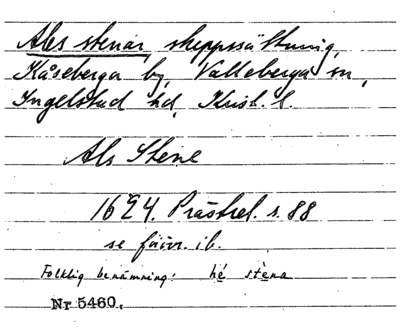 Ales stenar, skeppssättning,
Kåseberga by, Valleberga sn,
Ingelstad hd, Krist. l.
Als Stene
1624. Prästrel. s. 88
se förv. ib.
Folklig benämning: hé stèna
Nr 5460.